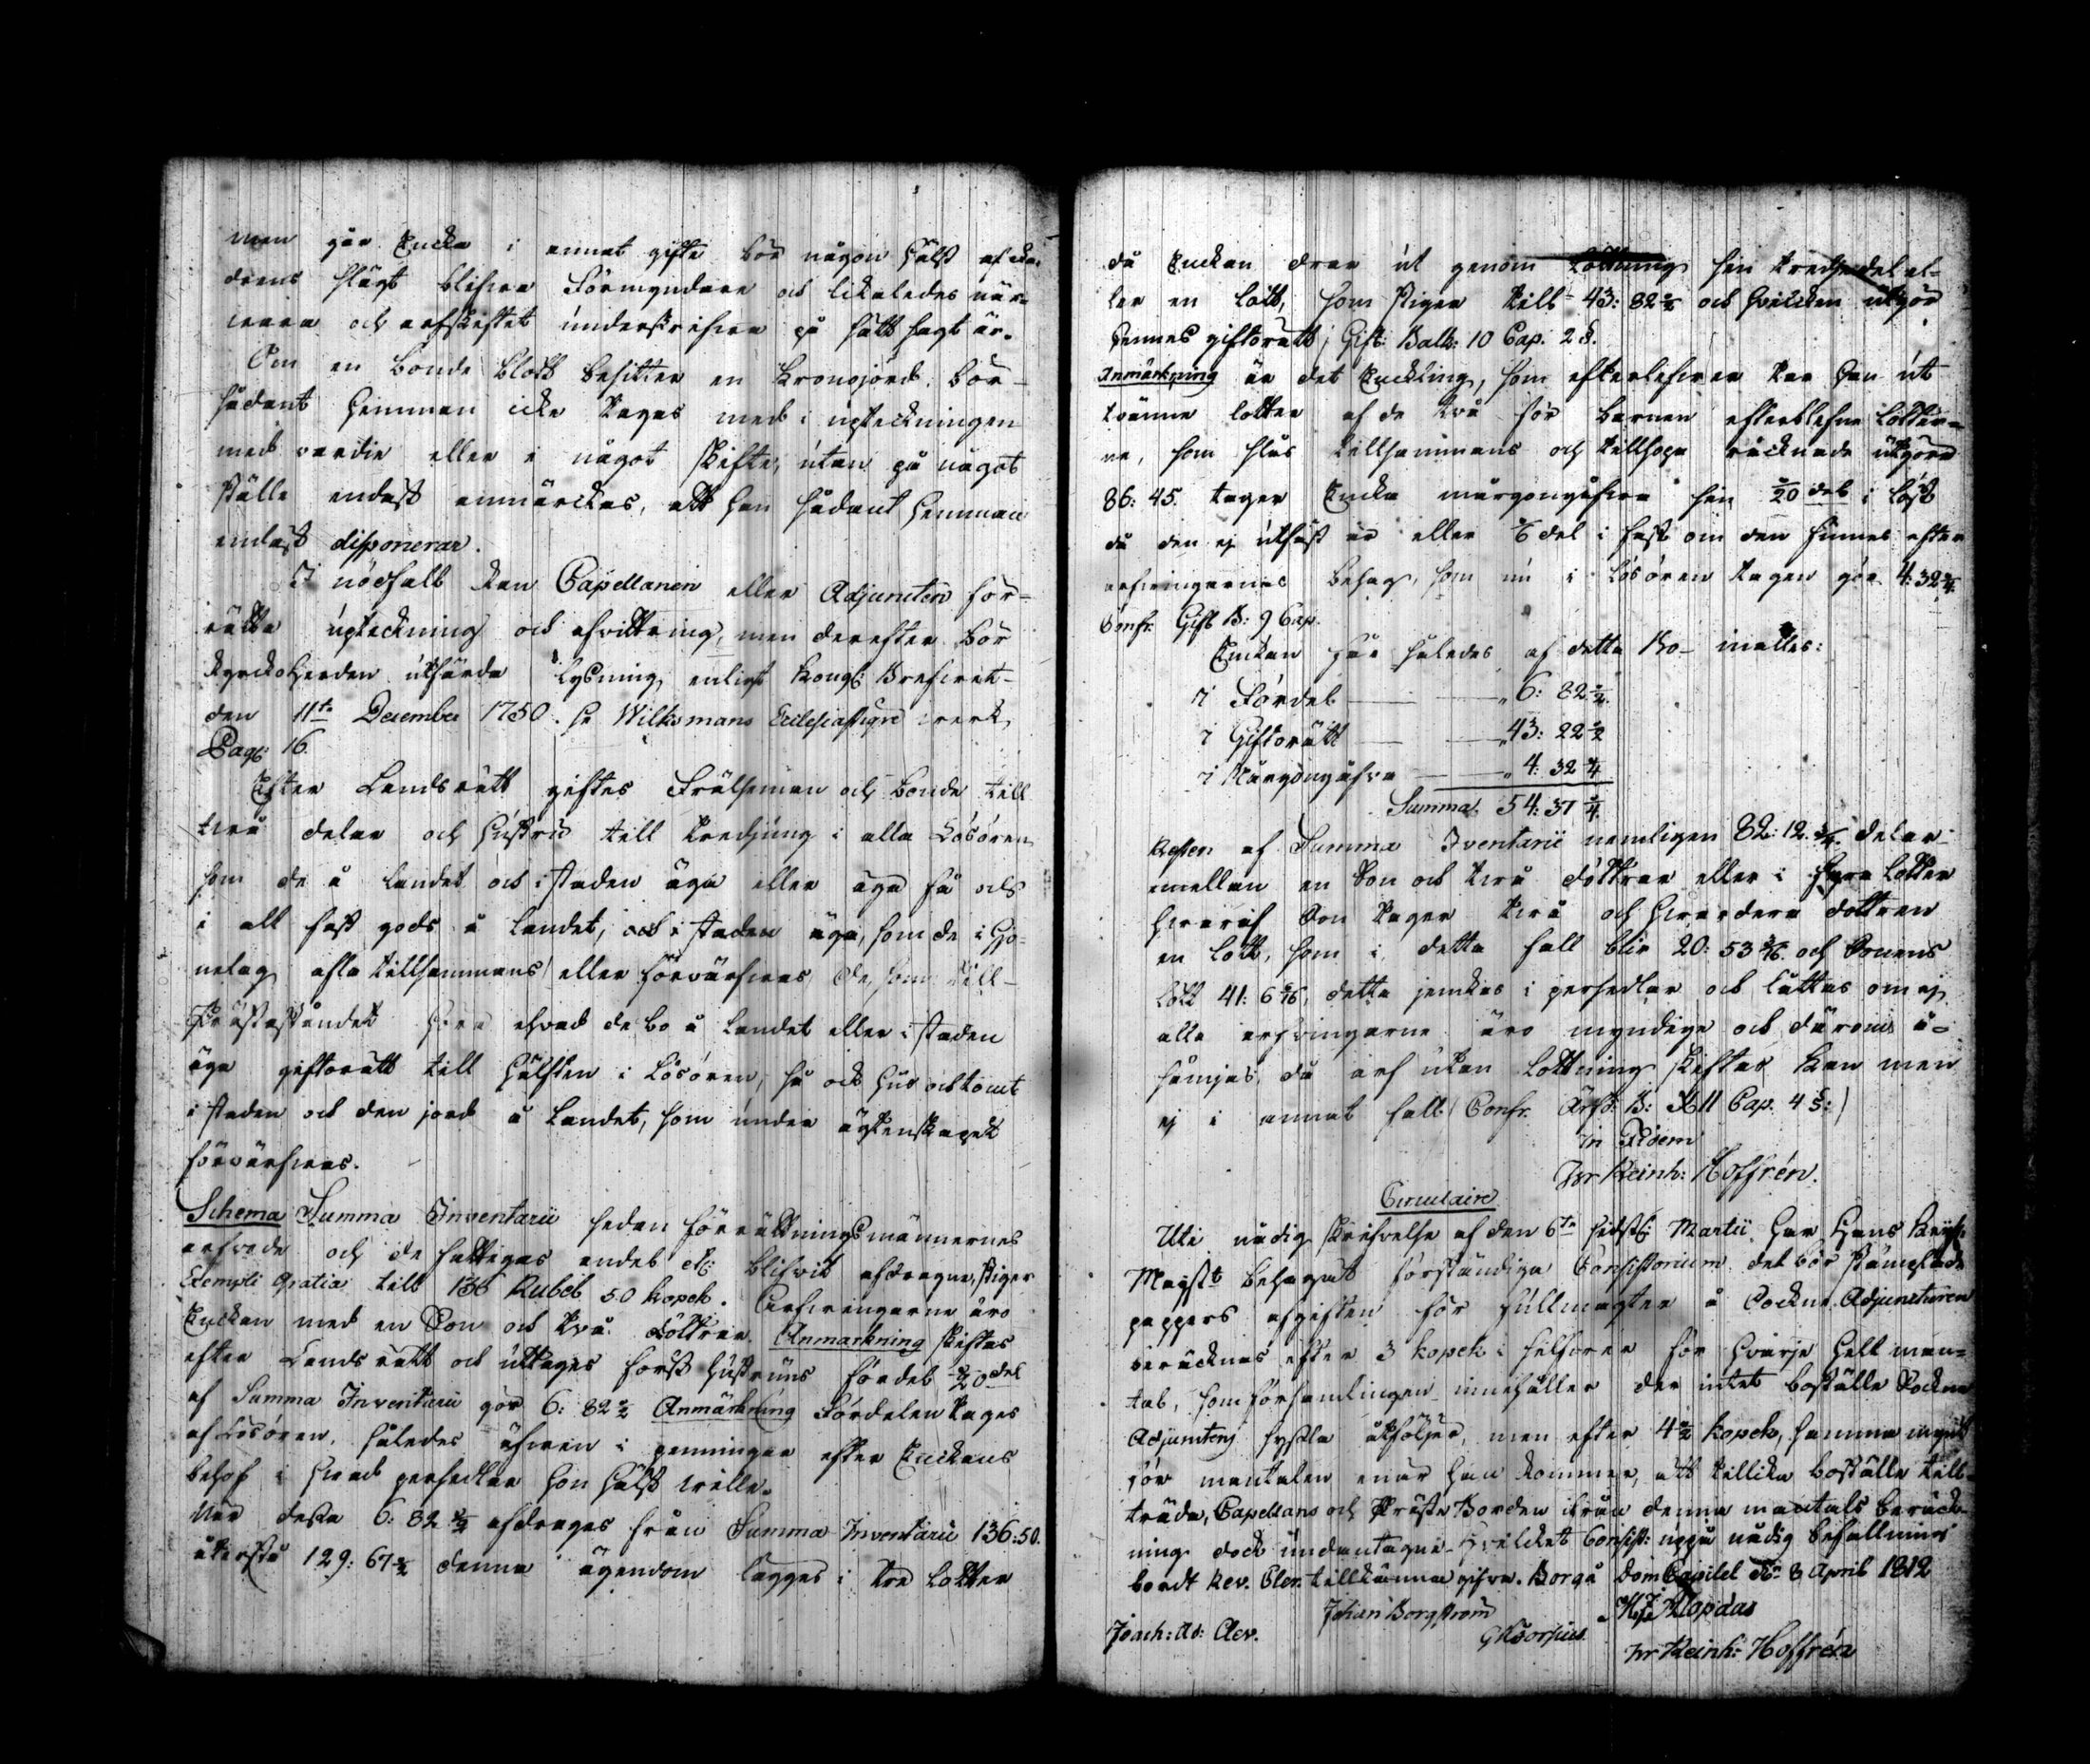 men går Enckan i annat gifte bör någon hälst af Fa-
drens slägt blifwa Förmyndare och likaledes när-
wara och arfskiftet underskrifwa på sätt sagt är.
Om en Bonde blott besitter en Kronojord, bör
sådant Hemman icke tagas med i upteckningen
med värdie eller i något skifte, utan på något
ställe endast anmärckas, att han sådant Hemman
endast disponerar.
I nödfall kan Capellanen eller Adjuncten för-
rätta upteckning och afwittring, men derefter bör
Kyrckoherden utfärda Lysning enligt Kongl: Brefwet
den 11te December 1750. Se Wilksmans Ecclesiastique werk
Pag: 16.
Efter Landsrätt giftes Frälseman och Bonde till
twå delar och Hustru till tredjung i alla Lösören
som de å landet och i staden äga eller ägd få och
i all fast gods å landet, och i staden äga, som de i Hjo-
nelag afla tillsammans eller förvärfwas, de, som till
Prästeståndet höra ehvad de bo å Landet eller i staden
äga giftorätt till hälften i Lösören, så ock hus och tomt
i staden och den jord å Landet, som under ägtenskapet
förvärfwas.
Schema Summa Inventarii sedan Förrättningsmännernes
arfvode och de fattigas andel etc: blifvit afdragne, stiger
Exempli Gratia till 136 Rubel 50 Kopek. Arfwingarne äro
Enckan med en Son och två Döttrar. Anmärkning skiftas
efter Landsrätt och uttages först Hustruns fördel 1/20 del
af Summa Inventarii gör 6: 82 1/2 Anmärkning Fördelen tages
af Lösören, således äfwen i penningar efter Enckans
behof i hwad persedlar hon hälst wille.
När dessa 6: 82 1/2 afdrages från Summa Inventarii 136:50.
återstå 129: 67 1/2 denna ägendom lägges i tre Lotter
då Enckan drar ut genom Lottning sin tredjedel el-
ler en lott, som stiger till 43: 22 1/2 och hvilcken utgör
hennes giftorätt, Gift: Balk: 10 Cap. 2 §.
Anmärkning är det Enckling, som efterlefwer tar han ut
twänne lotter af de två för barnen efterblefne Lotter-
ne, som slås tillsammans och tillhopa räcknade utgöra
86: 45. tager Encka morgongåfwa sin 1/20 del i löst
då den ej utfäst är eller 1/6 del i fast om den finnes efter
arfwingarnes behag, som nu i Lösören tagen gör 4: 32 1/4.
Confr. Gift B: 9 Cap.
Enckan får således af detta Bo inalles:
i Fördel 6: 82 1/2.
i Giftorätt 43: 22 1/2
i Morgongåfva 4: 32 1/4
Summa 54: 37 1/4.
Resten af Summa Iventarii nemligen 82: 12. 3/4. delas
emellan en Son och twå döttrar eller i fyra Lotter
hwaraf Son tager twå och hwardera dottren
en lott, som i detta fall blir 20: 53 3/16 och Sonens
lott 41: 6 6/16, detta jemkas i persedlar och lottas om ej
alla arfwingarne äro myndige och därom å-
sämjas, då arf utan Lottning skiftas kan men
ej i annat fall (Confr. Ärfd: B: XII Cap. 4 §:)
In Fidem
Jur Reinh: Hoffrén.
Circulaire
Uti nådig skrifvelse af den 6te sidstl: Martii har Hans Keys:
Mayst: behagat förständiga Consistorium det bör stämplade
pappers afgiften för fullmagter å Sockne Adjuncturen
beräcknas efter 3 kopek i silfver för hvarje helt man-
tal, som församlingen innehåller der intet boställe Sockne
Adjunctens sysla åtföljer, men efter 4 1/2 Kopek, samma mynt
för mantalen enär han kommer, att tillika boställe till-
träda, Capellans och Präste Borden ifrån denna mantals beräck-
ning dock undantagne. Hvilcket Consist: uppå nådig befallning
bordt Rev. Cler. tillkänna gifva. Borgå DomCapitel den 8 April 1812
Johan Borgström
M: J: Alopæus
Joach: Ad: Clev.
G Kiorsius
Jur Reinh: Hoffrén